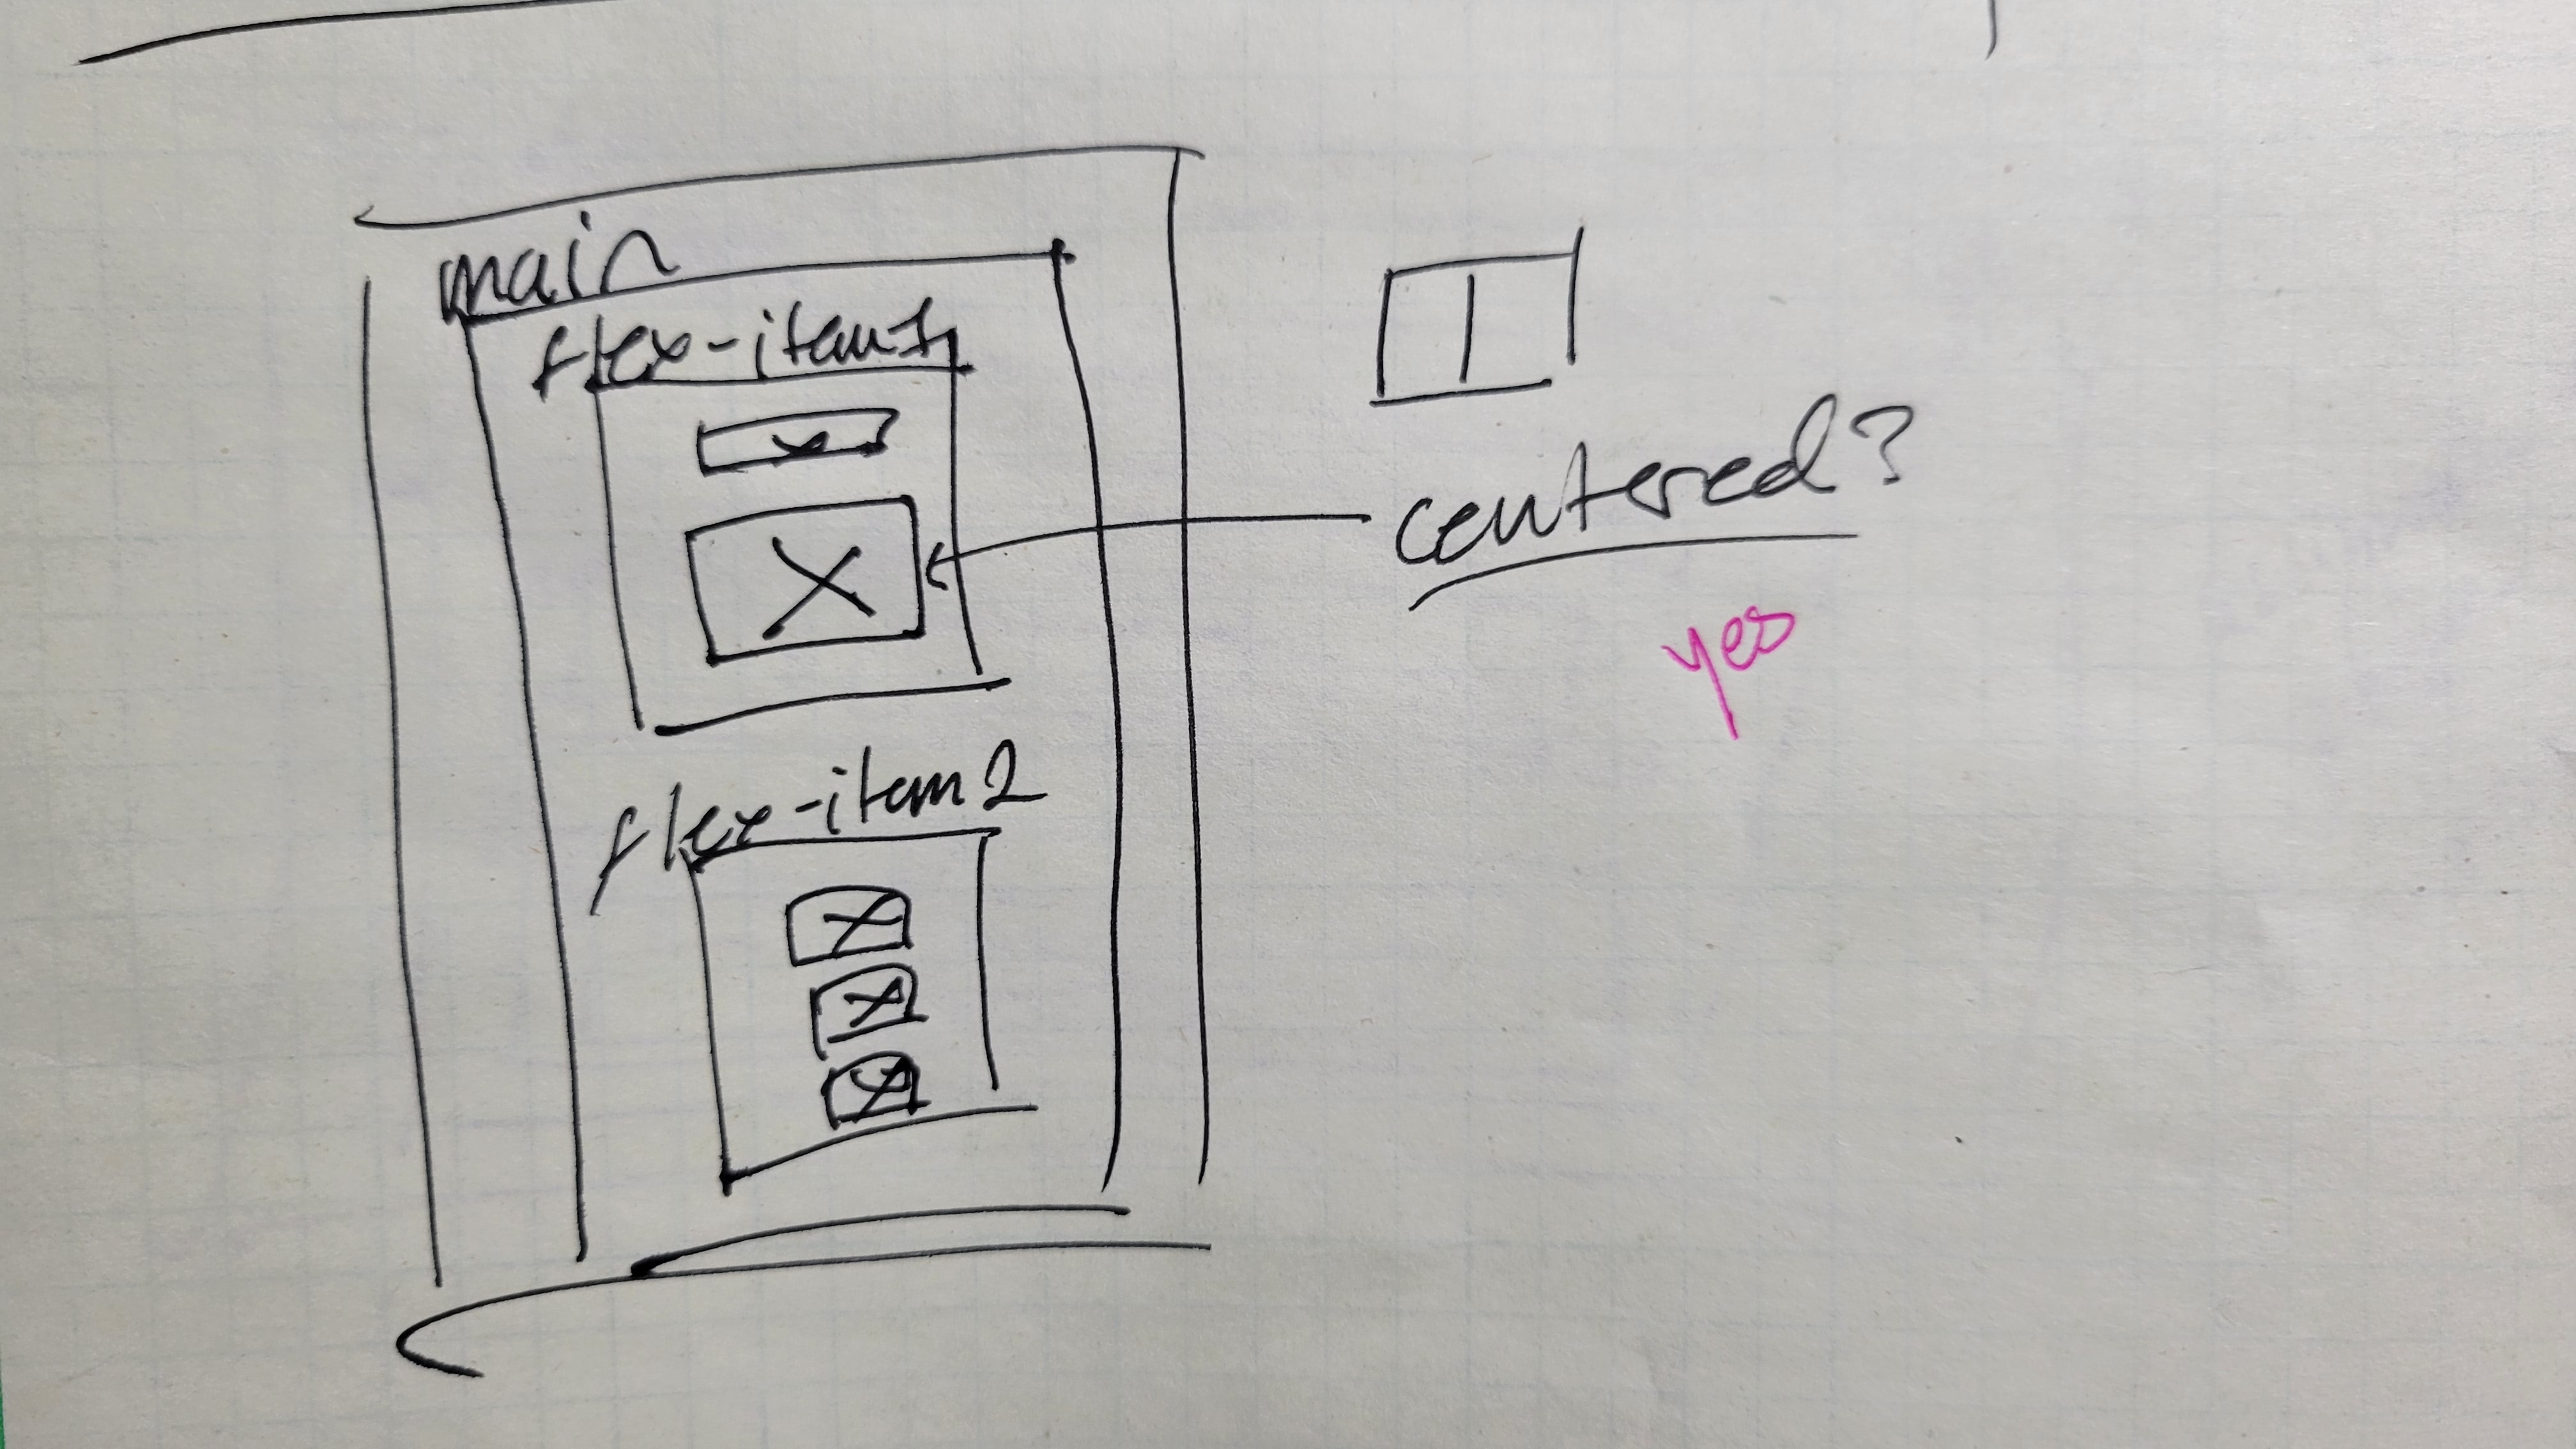 main
flex-item1
flex-item2
centered?
yes